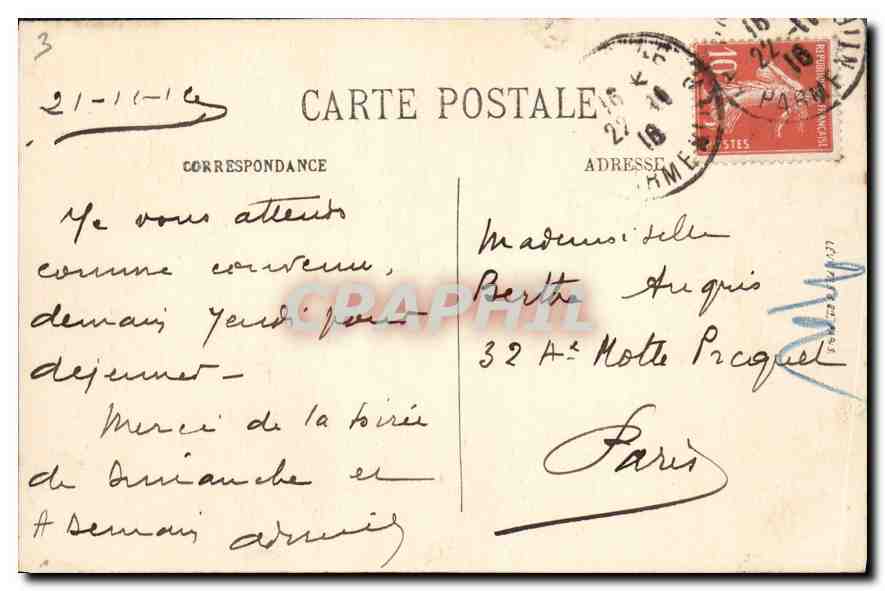 3
21-11-16
CARTE POSTALE
CORRESPONDANCE
ADRESSE
10
REPUBLIQUE FRANÇAISE
POSTES
16
22-11
16
PARMENTIER
Je vous attends
comme convenu,
demain Jeudi pour
dejeuner -
Merci de la soirée
de Dimanche et
A Demain
Mademoiselle
Berthe Anquis
32 Ae Motte Picquet
Paris
CPAPHIL